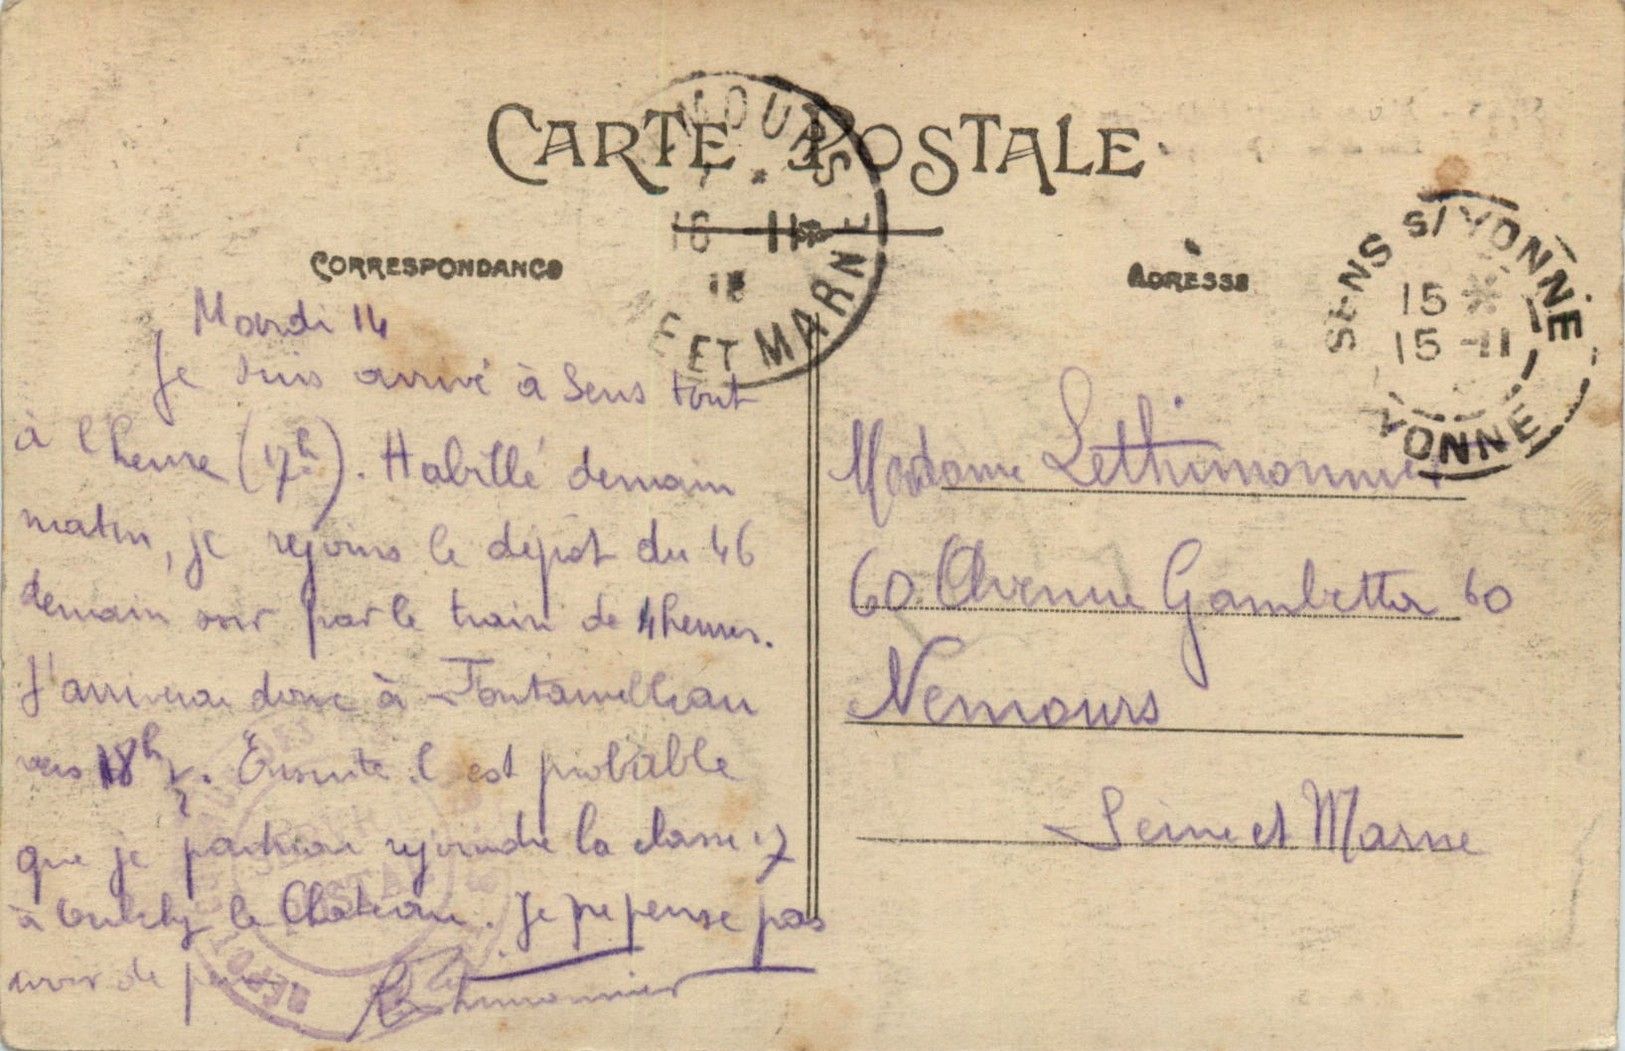 CARTE POSTALE
CORRESPONDANCE
Mardi 14
Je suis arrivé à Sens tout
à l'heure (17h). Habillé demain
matin, je rejoins le dépôt du 46
demain soir par le train de 4 heures.
J'arriverai donc à Fontainebleau
vers 18h ½. Ensuite il est probable
que je partirai rejoindre la classe 17
à Oulchy le Château. Je ne pense pas
avoir de
Lethimonnier
MOURS
16 -11
NE ET MARNE
ADRESSE
SENS S/ YONNE
15 *
15 -11
YONNE
Madame Lethimonnier
60 Avenue Gambetta 60
Nemours
Seine et Marne
DÉPÔT